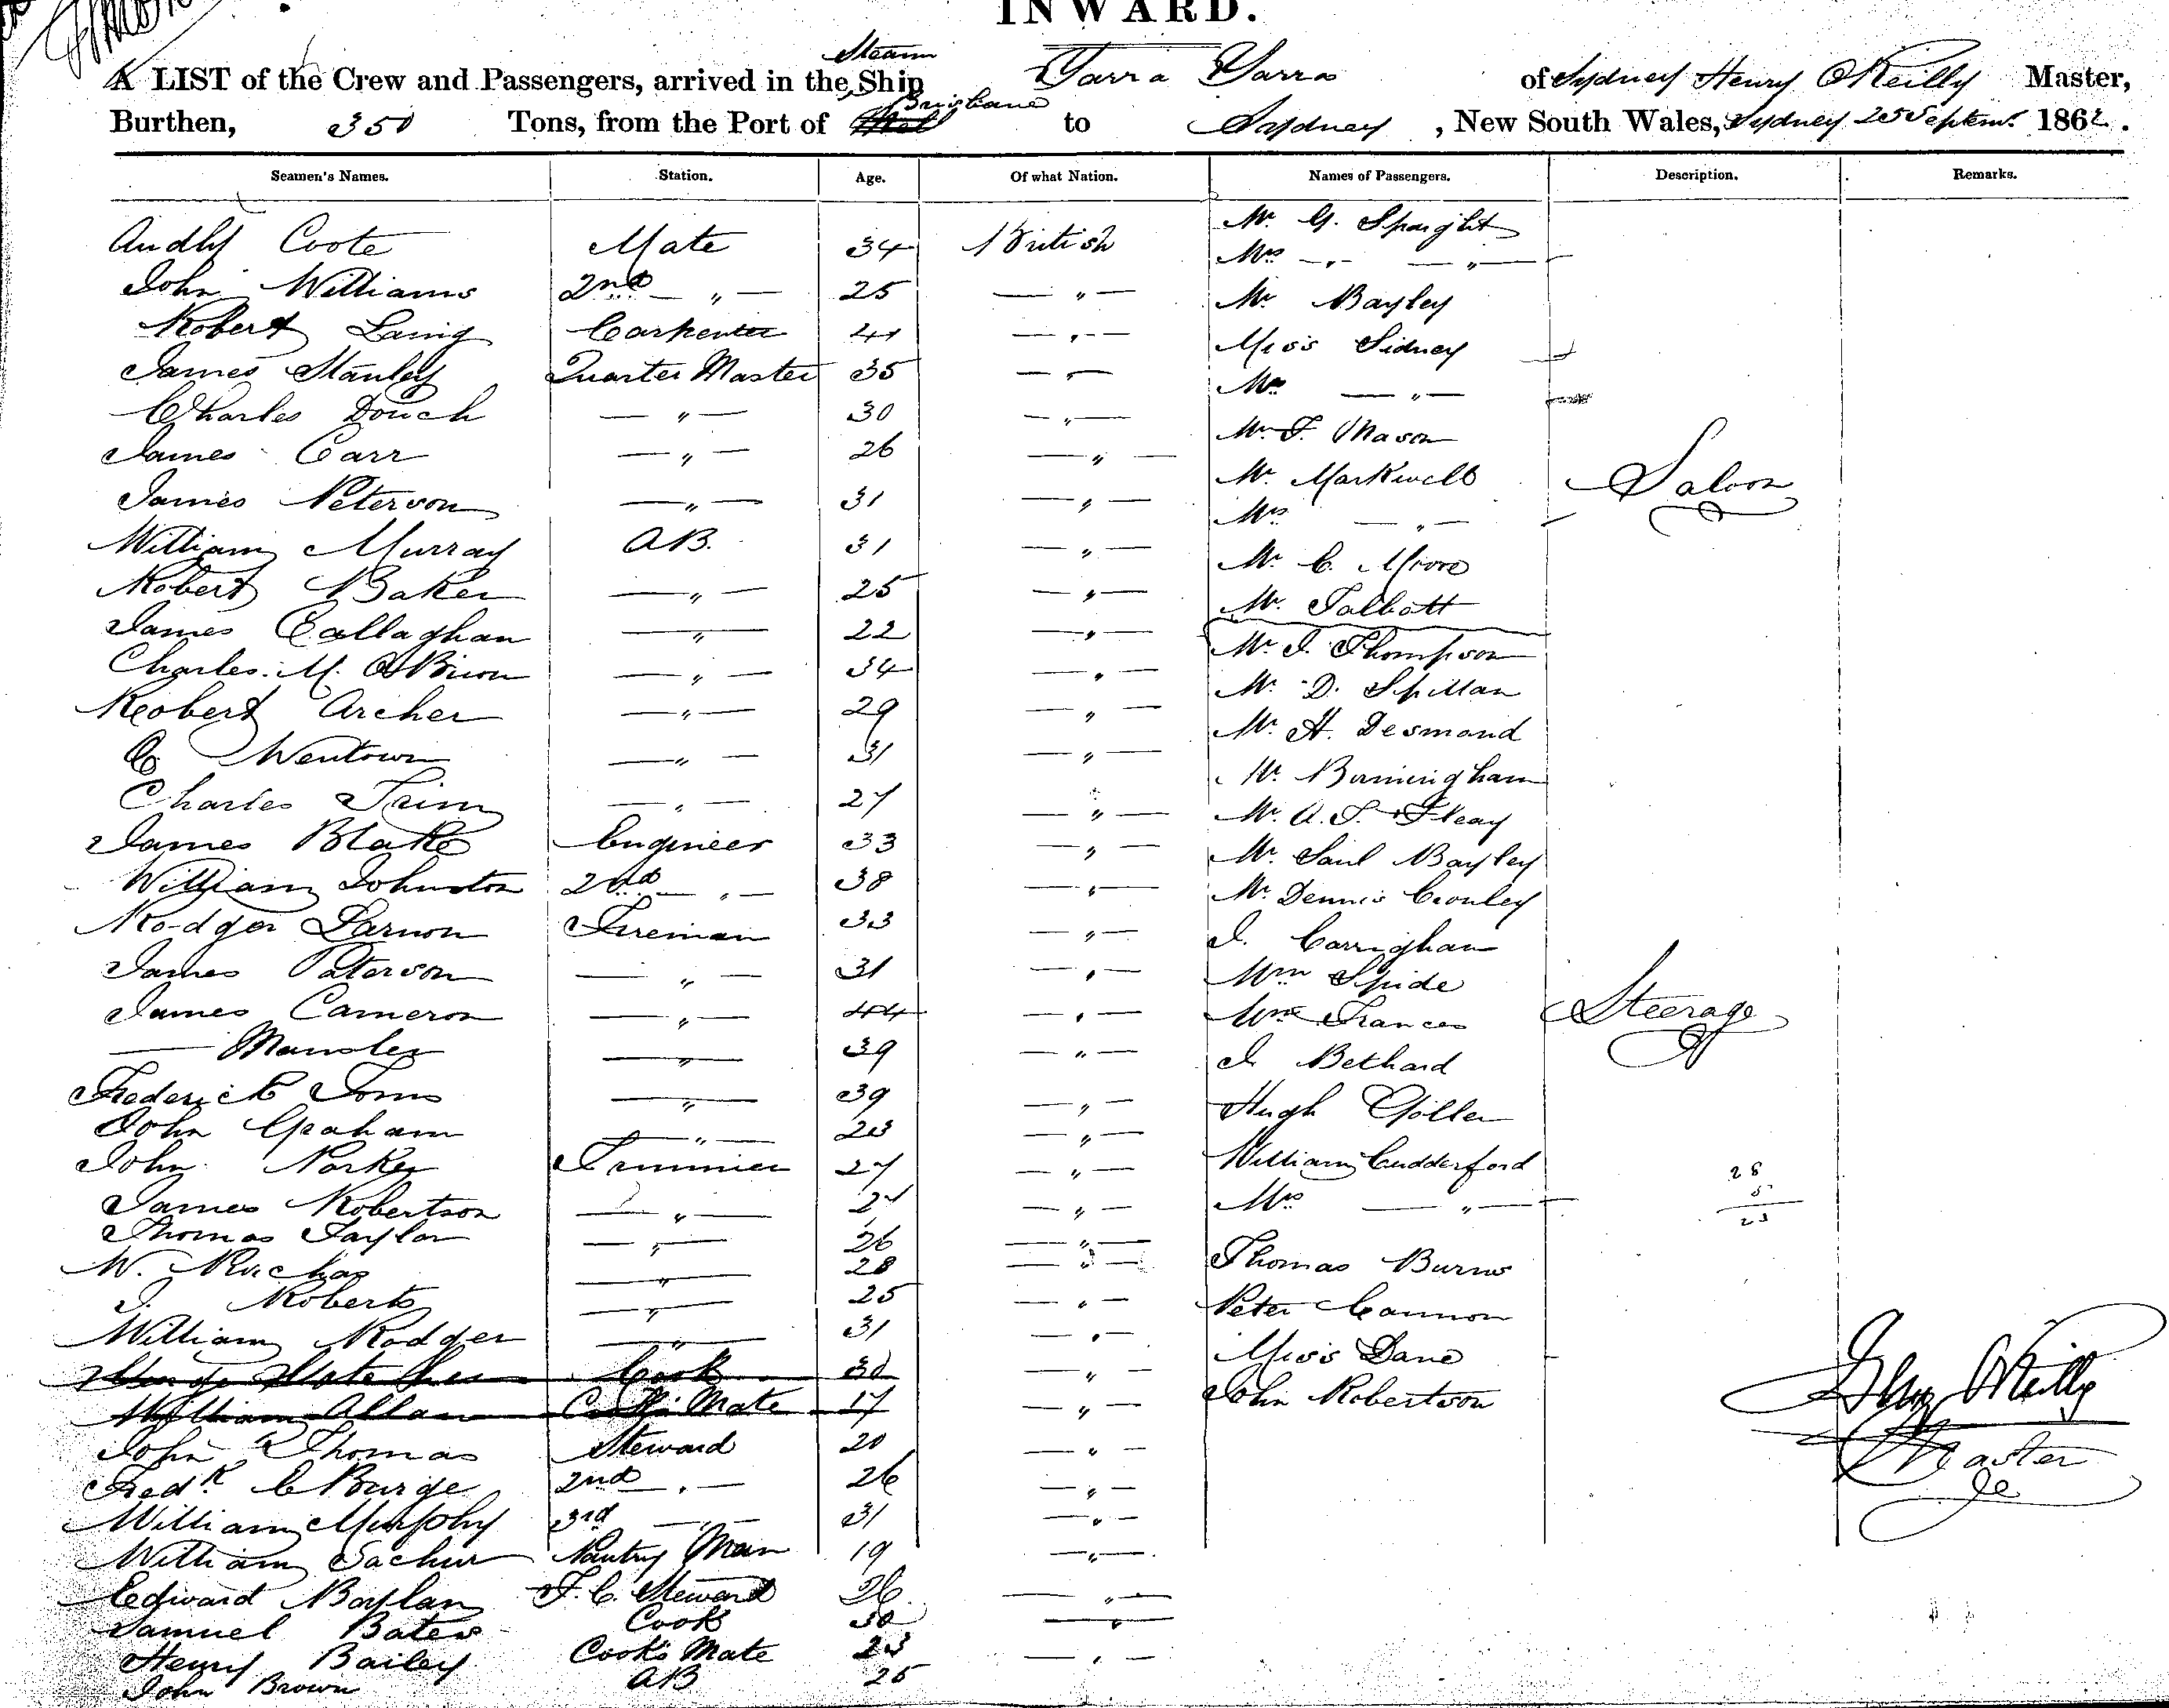 INWARD.
A LIST of the Crew and Passengers, arrived in the Steam Ship Yarra Yarra of Sydney Henry O'Reilly Master,
Burthen, 350 Tons, from the Port of Brisbane to Sydney, New South Wales, Sydney 25 Septemr 1862.
Seamen's Names. Station. Age. Of what Nation. Names of Passengers. Description. Remarks.
Coote Mate 34 British
John Williams 2nd — " — 25 — " —
Robert Laing Carpenter 41 — " —
James Stanley Quarter Master 35 — " —
Charles Douch — " — 30 — " —
James Carr — " — 26 — " —
James Peterson — " — 31 — " —
William Murray AB. 31 — " —
Robert Baker — " — 25 — " —
James Callaghan — " — 22 — " —
Charles M. O'Brien — " — 34 — " —
Robert Archer — " — 29 — " —
— " — 31 — " —
Charles Trim — " — 27 — " —
James Blake Engineer 33 — " —
William Johnston 2nd — " — 38 — " —
Rodger Fireman 33 — " —
James Paterson — " — 31 — " —
James Cameron — " — 44 — " —
— " — 39 — " —
Frederick — " — 39 — " —
John Graham — " — 23 — " —
John Trimmer 27 — " —
James Robertson — " — 27 — " —
Thomas Taylor — " — 26 — " —
W. — " — 28 — " —
J. Roberts — " — 25 — " —
William Rodger — " — 31 — " —
Cook 30 — " —
William Allan Cook's Mate 17 — " —
John Thomas Steward 20 — " —
Fredk C Burge 2nd — " — 26 — " —
William Murphy 3rd — " — 31 — " —
William Pantry Man 19 — " —
Edward Boylan F. C. Steward 26 — " —
Samuel Bates Cook 30 — " —
Henry Bailey Cook's Mate 23 — " —
John Brown AB 25
Mr. G. Spaight
Mrs — " — — " —
Mr Bayley
Miss Sidney
— " —
Mr F. Mason
Mr. Markwell
Mrs — " —
Mr. C. Moore
Mr. Talbott
Saloon
Mr. J. Thompson
Mr. D. Spillan
Mr. H. Desmond
Mr. Birmingham
Mr. A. J.
Mr. Saul Bayley
Mr. Dennis
J. Carrighan
Wm Spide
Wm Frances
J. Bethard
Hugh
William Cudderford
Mrs — " —
Thomas Burns
Peter Cannon
Miss Dane
John Robertson
Steerage
28
5
23
O'Reilly
Master